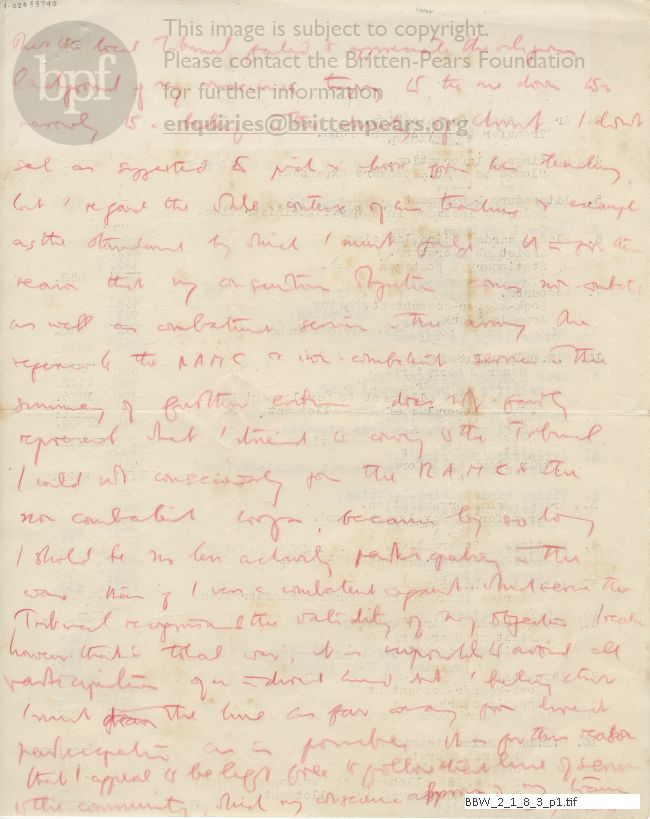 1-0205?742
BBW
This image is subject to copyright.
Please contact the Britten-Pears Foundation
for further information
enquiries@brittenpears.org
bpf
that the local Tribunal failed to appreciate the religious
background of my conscience, trying to tie me down too
narrowly to a belief in the divinity of Christ. I don't
seek as suggested to pick & choose from his teaching,
but I regard the whole context of his teaching & example
as the standard by which I must judge. It is for this
reason that my conscientious objection covers non-combatant
as well as combatant service in the army. The
reference to the RAMC & non-combatant service in the
summary of further evidence does not fairly
represent what I tried to convey to the Tribunal.
I could not conscientiously join the RAMC or the
non combatant corps, because by so doing
I should be no less actively participating in the
war than if I were a combatant against which service the
Tribunal recognised the validity of my objection. I realise
however that in total war, it is impossible to avoid all
participation of an indirect kind but I believe that
I must draw the line as far away from direct
participation as is possible. It is for this reason
that I appeal to be left free to follow that line of service
to the community which my conscience approves & my training
BBW_2_1_8_3_p1.tif